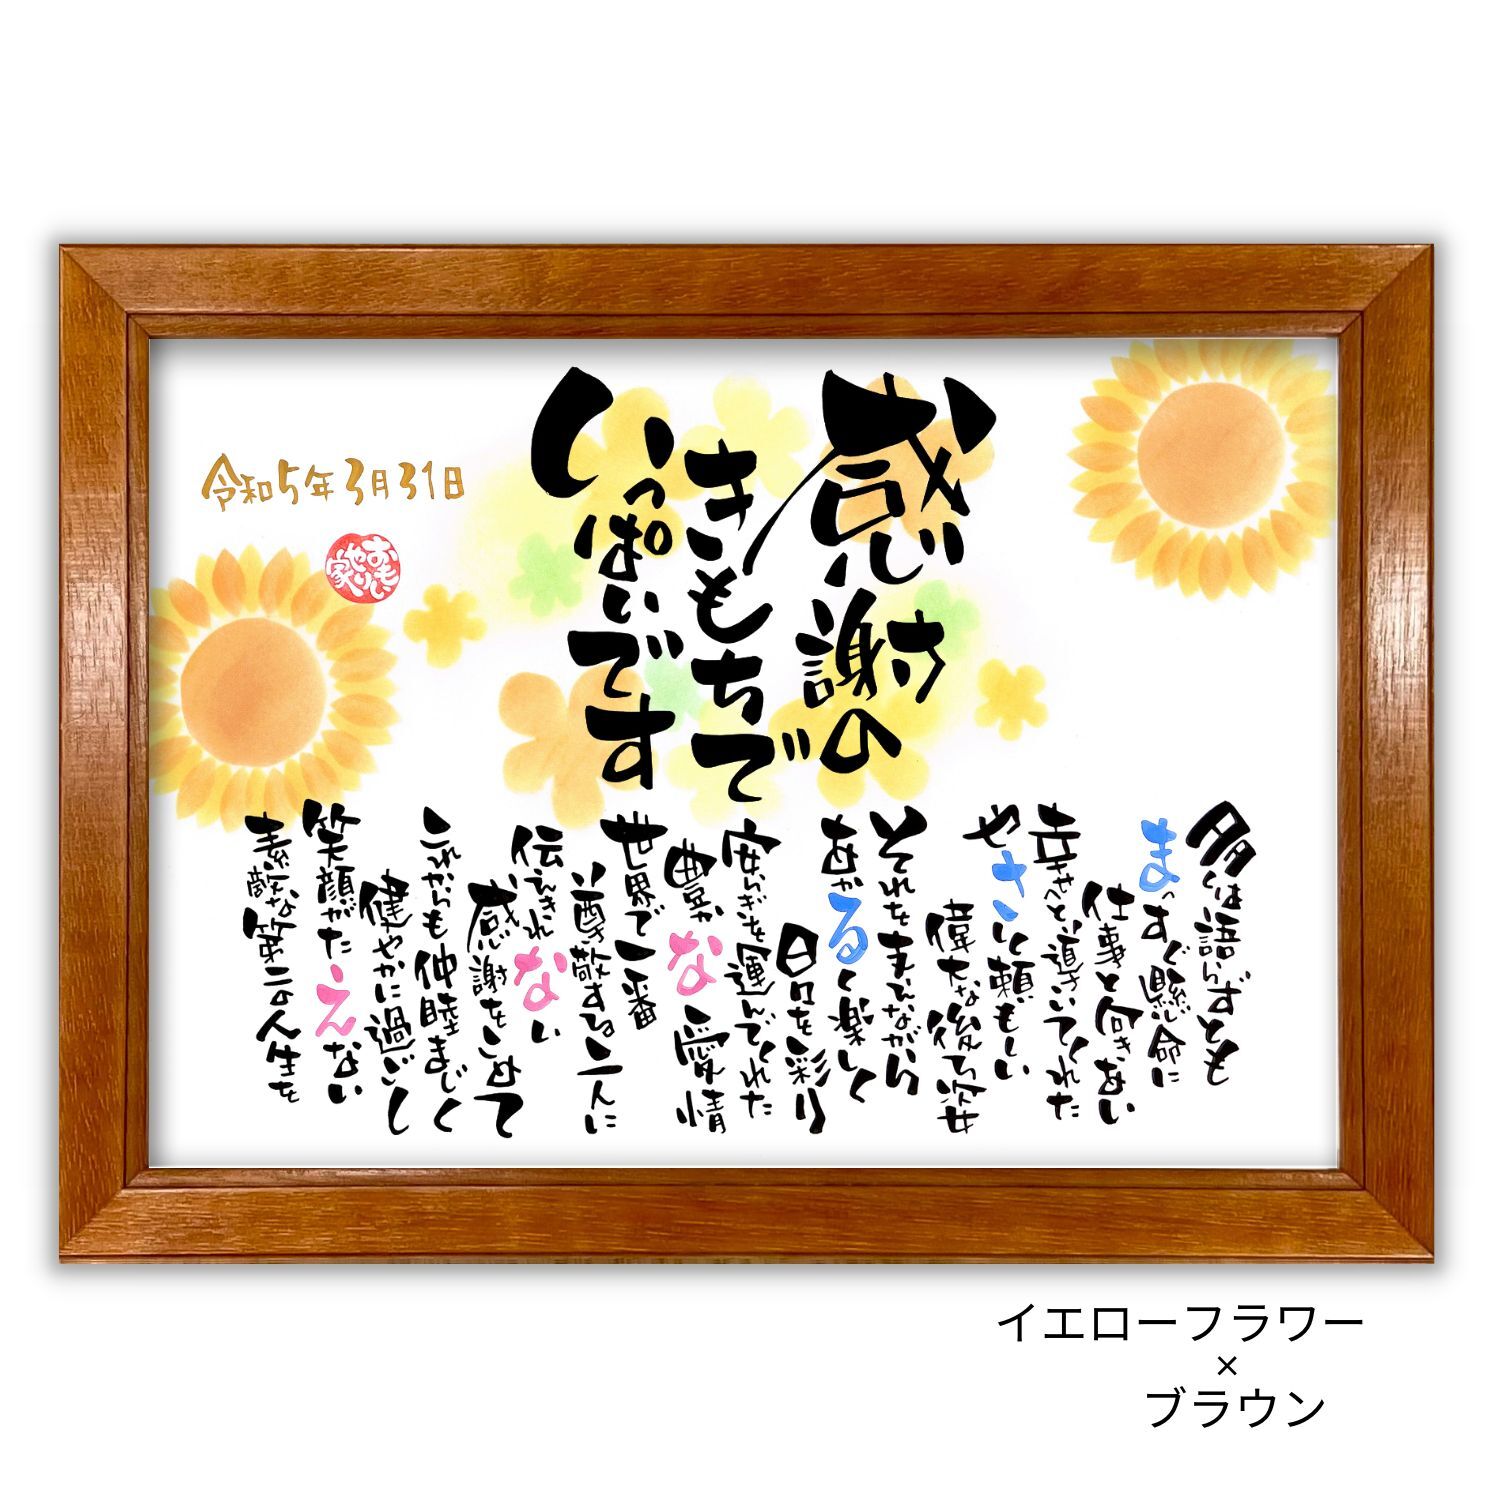 感謝の
きもちで
いっぱいです
令和5年3月31日
おもい
やり
家
多くは語らずとも
まっすぐ懸命に
仕事と向きあい
幸せへと導いてくれた
やさしく頼もしい
偉大な後ろ姿
それをまねながら
あかるく楽しく
日々を彩り
安らぎを運んでくれた
豊かな愛情
世界で一番
尊敬する二人に
伝えきれない
感謝をこめて
これからも仲睦まじく
健やかに過ごし
笑顔がたえない
素敵な第二の人生を
イエローフラワー
×
ブラウン